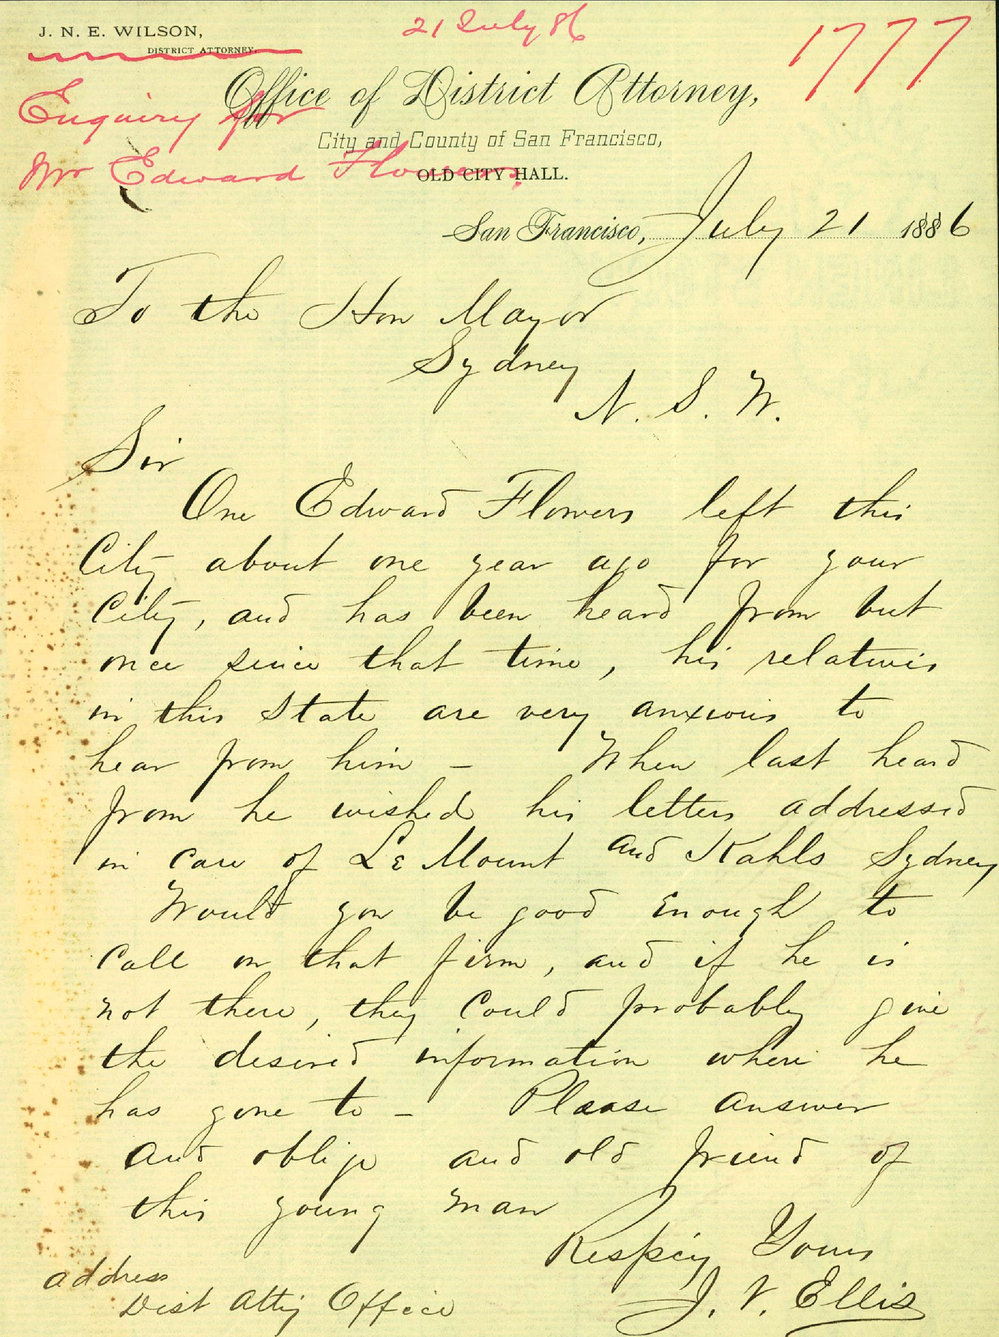 J. N. E. WILSON,
DISTRICT ATTORNEY.
21 July 86
1777
Enquiry for
Mr Edward Flowers.
Office of District Attorney,
City and County of San Francisco,
OLD CITY HALL.
San Francisco, July 21 1886
To the Hon Mayor
Sydney
N. S. W.
Sir
One Edward Flowers left this
City about one year ago for your
City, and has been heard from but
once since that time, his relatives
in this State are very anxious to
hear from him – When last heard
from he wished his letters addressed
in care of Le Mount and Kahls Sydney
Would you be good enough to
call on that firm, and if he is
not there, they could probably give
the desired information where he
has gone to – Please answer
and oblige and old friend of
this young man
Respcy Yours
J. V. Ellis
address
Dist Atty Office